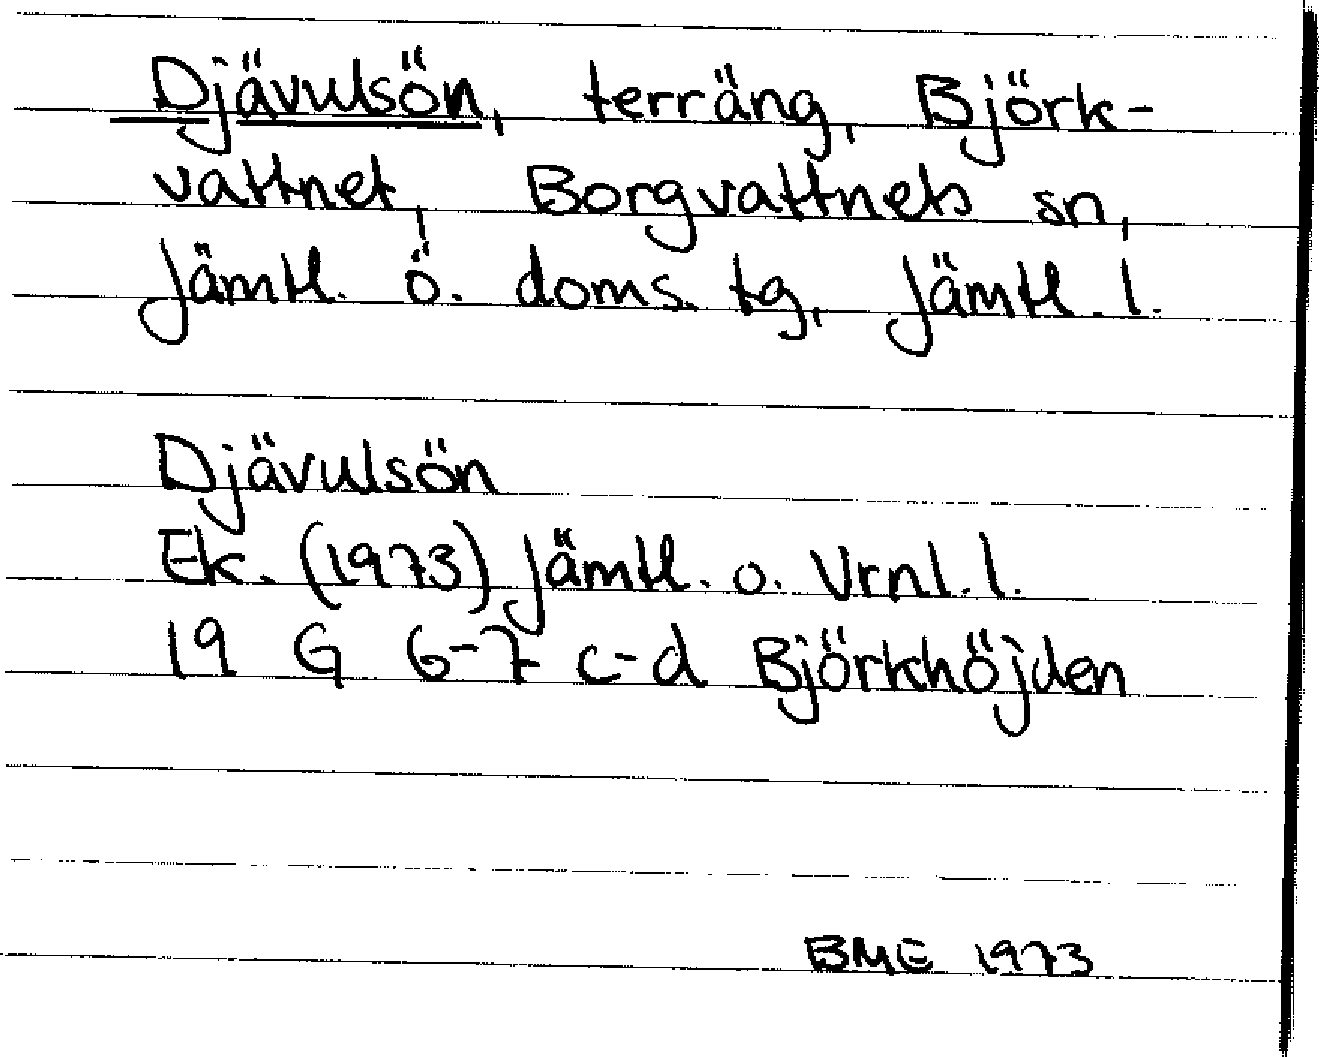 Djävulsön, terräng, Björk-
vattnet, Borgvattnets sn,
Jämtl. ö. doms. tg, Jämtl. l.
Djävulsön
Ek. (1973) Jämtl. o. Vrnl. l.
19 G 6-7 c-d Björkhöjden
BME 1973